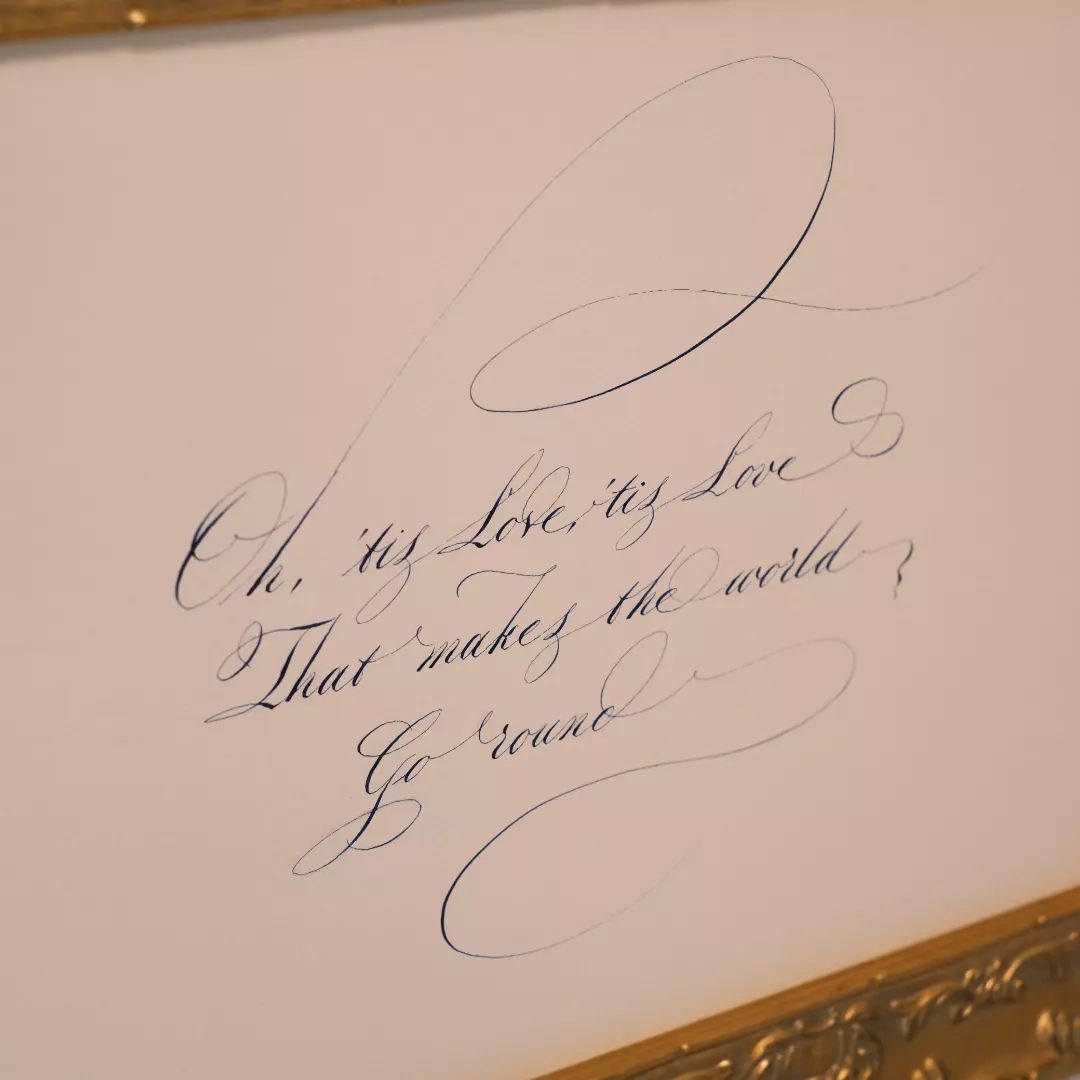 Oh, 'tis Love, 'tis Love
That makes the world
Go 'round